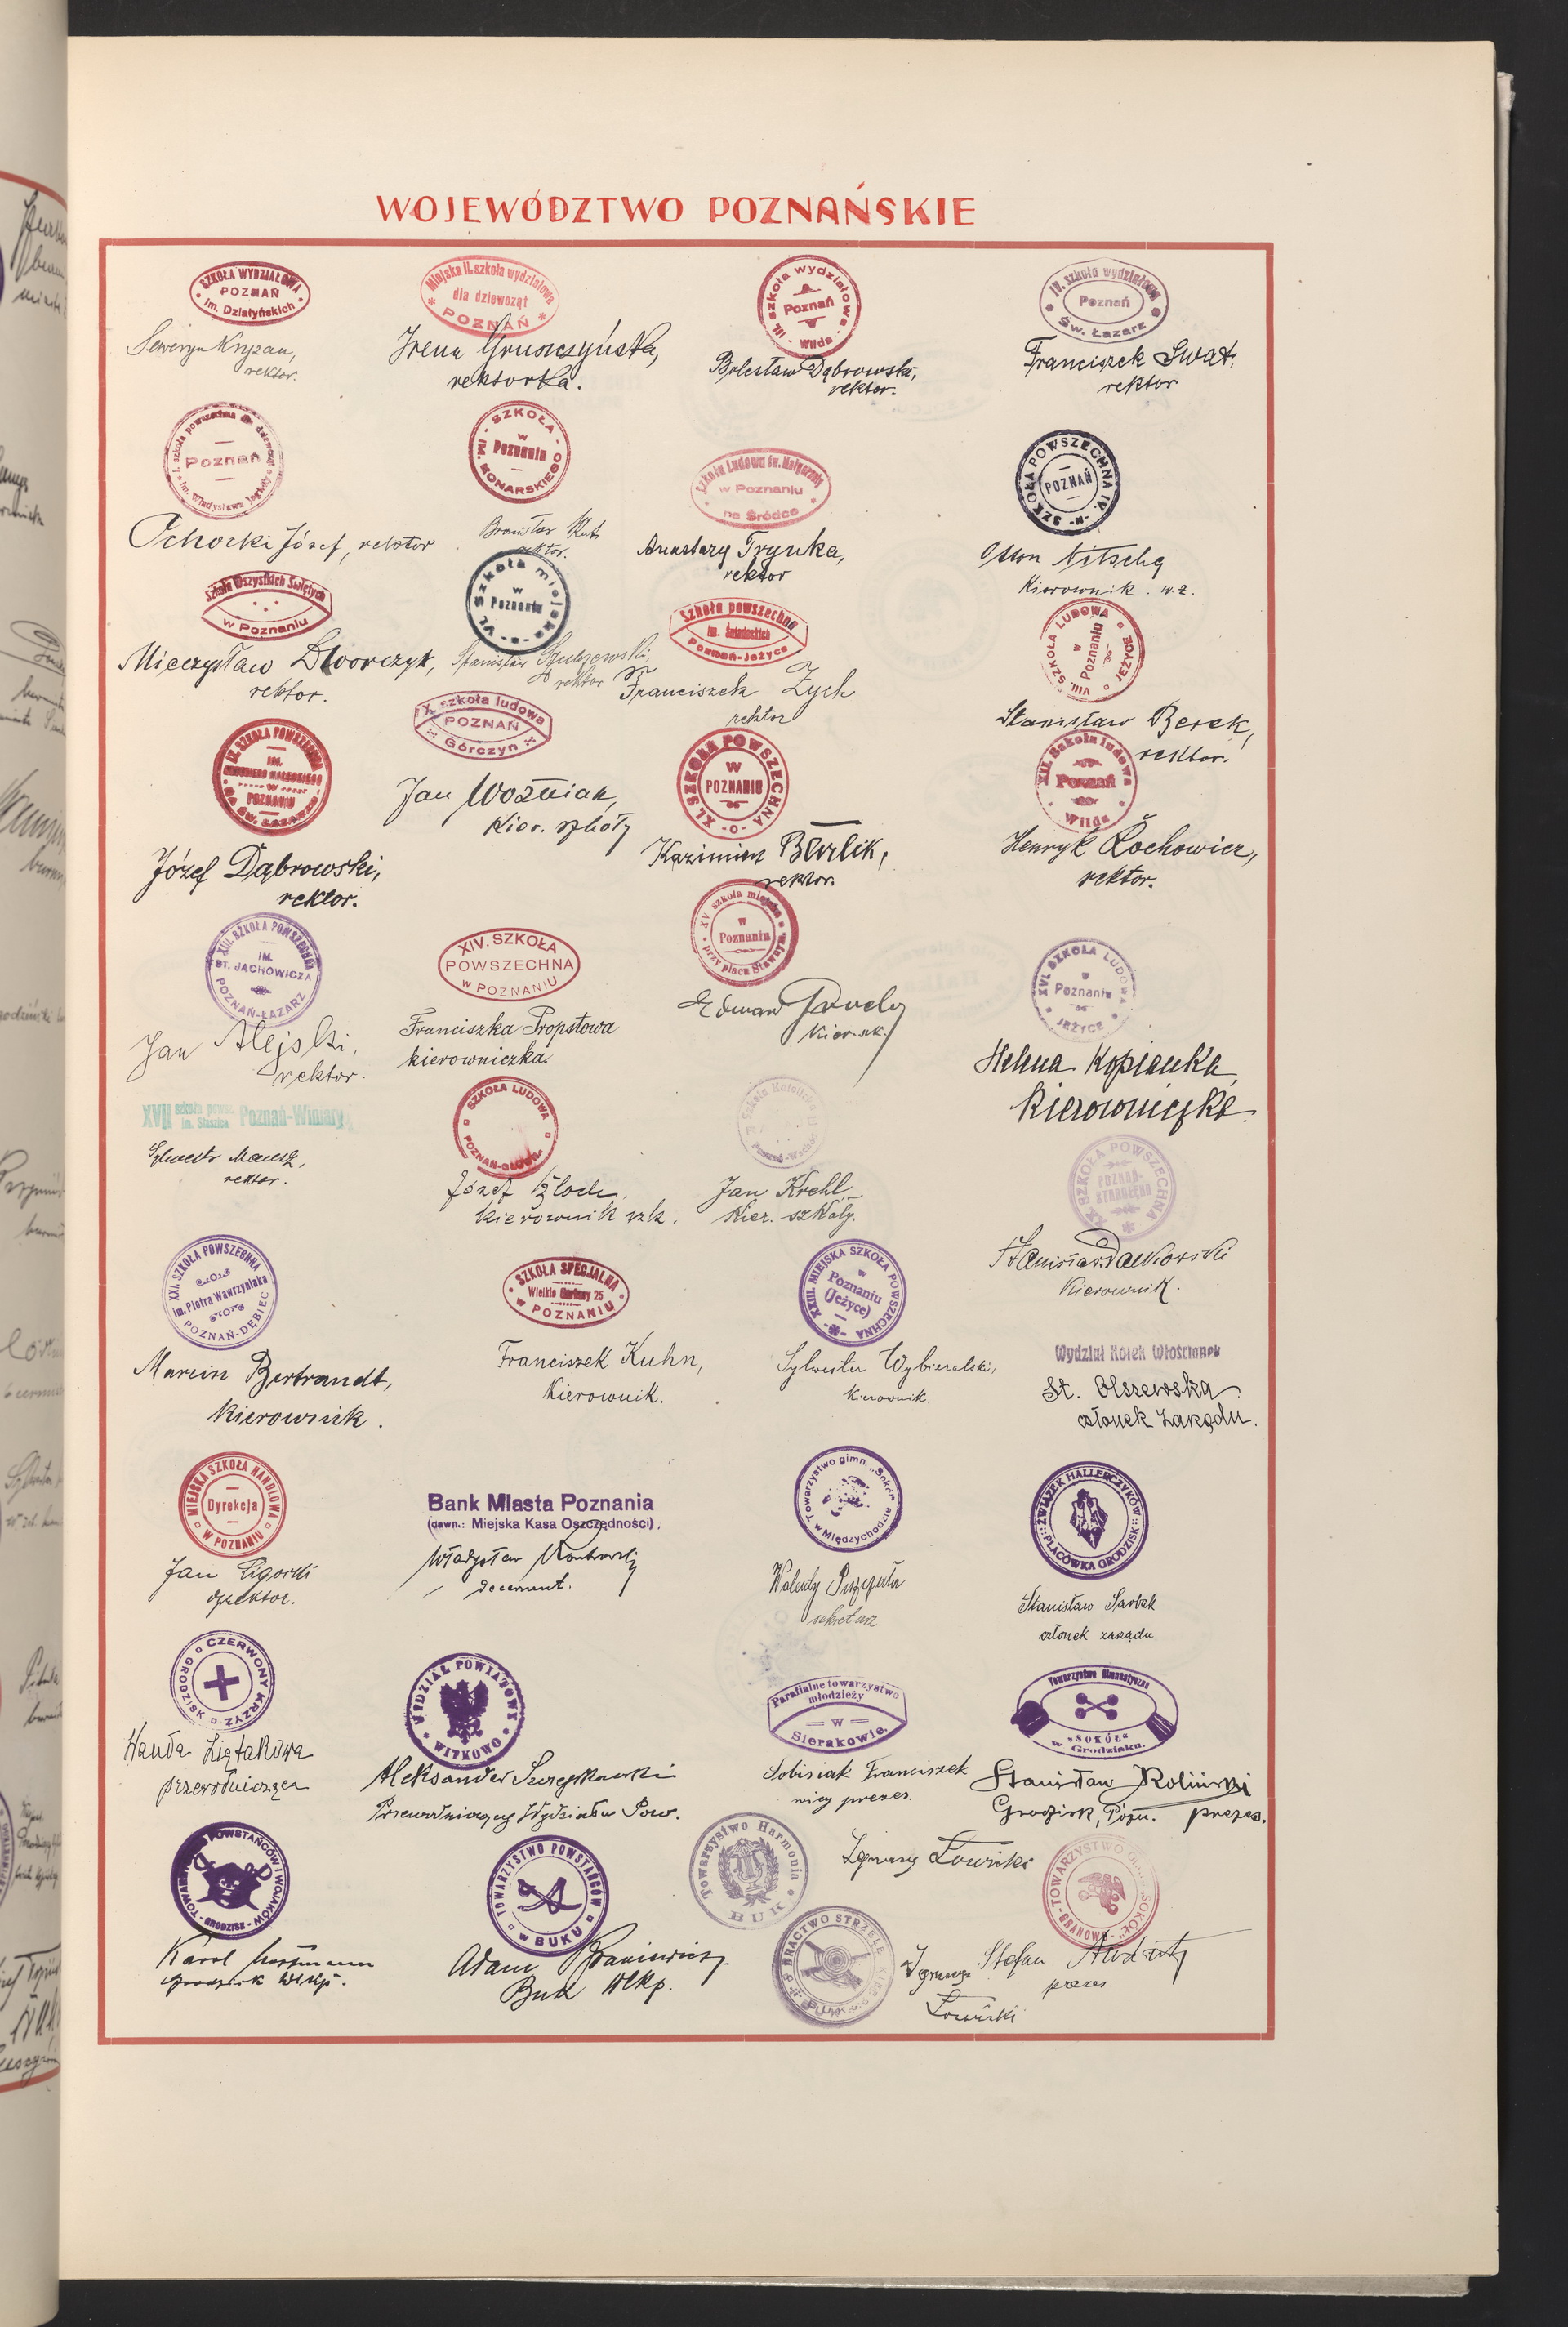 WOJEWÓDZTWO POZNAŃSKIE
SZKOŁA WYDZIAŁOWA
POZNAŃ
im. Działyńskich
Seweryn Kryzan,
rektor.
Miejska II. szkoła wydziałowa
dla dziewcząt
POZNAŃ
Irena Gruszczyńska,
rektorka.
III. szkoła wydziałowa
Poznań
Wilda
Bolesław Dąbrowski,
rektor.
IV. szkoła wydziałowa
Poznań
Św. Łazarz
Franciszek Swat,
rektor
I. szkoła powszechna dla dziewcząt
Poznań
im. Władysława Jagiełły
Ochocki Józef, rektor
SZKOŁA
w
Poznaniu
IM. KONARSKIEGO
Bronisław Kut
rektor.
Szkoła Ludowa św. Małgorzaty
w Poznaniu
na Śródce
Anastazy Trynka,
rektor
SZKOŁA POWSZECHNA IV.
POZNAŃ
Otton Nitsche
Kierownik. w. z.
Szkoła Wszystkich Świętych
w Poznaniu
Mieczysław Dworczyk,
rektor.
VI. Szkoła miejska
w
Poznaniu
Stanisław
rektor
Szkoła powszechna
im. Świadeckich
Poznań-Jeżyce
Franciszek Zych
rektor
VIII SZKOŁA LUDOWA
w
Poznaniu
JEŻYCE
Stanisław Berek,
rektor.
IX. SZKOŁA POWSZECHNA
IM.
w
POZNANIU
NA ŚW. ŁAZARZU
Józef Dąbrowski,
rektor.
X. szkoła ludowa
POZNAŃ
Górczyn
Jan Woźniak,
Kier. szkoły
XI. SZKOŁA POWSZECHNA
W
POZNANIU
Kazimierz Burlik,
rektor.
XII. Szkoła ludowa
Poznań
Wilda
Henryk Łochowicz,
rektor.
XIII. SZKOŁA POWSZECHNA
IM.
ST. JACHOWICZA
POZNAŃ-ŁAZARZ
Jan Alejski,
rektor.
XIV. SZKOŁA
POWSZECHNA
w POZNANIU
Franciszka Propstowa
kierowniczka.
XV szkoła miejska
w
Poznaniu
przy placu Stawnym
Edward
Kier. szk.
XVI. SZKOŁA LUDOWA
w
Poznaniu
JEŻYCE
Helena Kopianka,
Kierowniczka.
XVII szkoła powsz.
im. Staszica Poznań-Winiary
Sylwester
rektor.
SZKOŁA LUDOWA
POZNAŃ-GŁÓWNA
Józef Błoch,
kierownik szk.
Szkoła Katolicka
Jan Krehl,
Kier. szkoły.
XX SZKOŁA POWSZECHNA
POZNAŃ-
STAROŁĘKA
Stanisław Dalkowski
Kierownik.
XXI. SZKOŁA POWSZECHNA
im. Piotra Wawrzyniaka
POZNAŃ-DĘBIEC
Marcin Bertrandt,
kierownik.
SZKOŁA SPECJALNA
Wielkie Garbary 25
w POZNANIU
Franciszek Kuhn,
Kierownik.
XXIII. MIEJSKA SZKOŁA POWSZECHNA
w
Poznaniu
(Jeżyce)
Sylwester Wybieralski,
Kierownik.
Wydział Kółek Włościanek
St. Olszewska
członek zarządu.
MIEJSKA SZKOŁA HANDLOWA
Dyrekcja
W POZNANIU
Jan Ligocki
dyrektor.
Bank Miasta Poznania
(dawn.: Miejska Kasa Oszczędności).
Władysław
decernent.
Towarzystwo gimn. „Sokół"
w Międzychodzie
Walenty
sekretarz
ZWIĄZEK HALLERCZYKÓW
PLACÓWKA GRODZISK
Stanisław Sarbak
członek zarządu
CZERWONY KRZYŻ
GRODZISK
Wanda Ziętakowa
przewodnicząca
WYDZIAŁ POWIATOWY
WITKOWO
Aleksander Szczepkowski
Przewodniczący Wydziału Pow.
Parafialne towarzystwo
młodzieży
W
Sierakowie.
Sobisiak Franciszek
wicy prezes.
Towarzystwo Gimnastyczne
„SOKÓŁ"
w Grodzisku.
Stanisław Roliński
Grodzisk, Pozn. prezes.
TOWARZ. POWSTAŃCÓW I WOJAKÓW
GRODZISK
Karol Hoffmann
Grodzisk Wlkp.
TOWARZYSTWO POWSTAŃCÓW
w BUKU
Adam Braniewicz
Buk Wlkp.
Towarzystwo Harmonia
BUK
Ignacy Łowiński
BRACTWO STRZELECKIE
BUK
Ignacy
Łowiński
TOWARZYSTWO GIMN. „SOKÓŁ"
GRANOWO
Stefan
prezes.